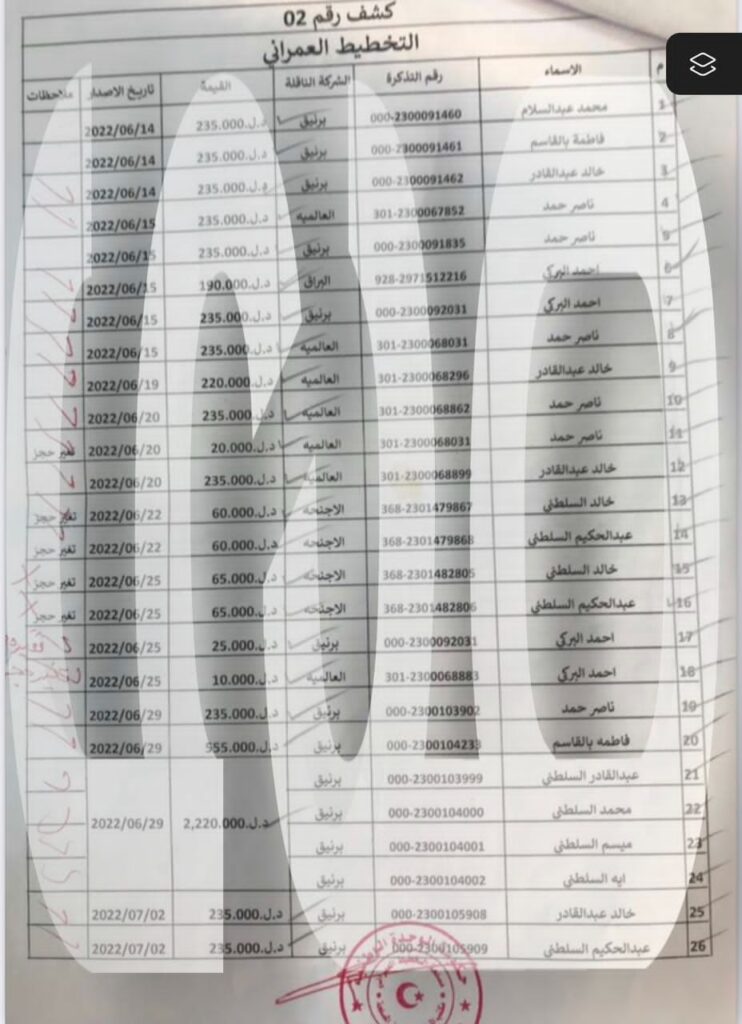 كشف رقم 02
التخطيط العمراني
م الاسماء رقم التذكرة الشركة الناقلة القيمة تاريخ الاصدار ملاحظات
1 محمد عبدالسلام 000-2300091460 برنيق د.ل.235.000 2022/06/14
2 فاطمة بالقاسم 000-2300091461 برنيق د.ل.235.000 2022/06/14
3 خالد عبدالقادر 000-2300091462 برنيق د.ل.235.000 2022/06/14
4 ناصر حمد 301-2300067852 العالميه د.ل.235.000 2022/06/15
5 ناصر حمد 000-2300091835 برنيق د.ل.235.000 2022/06/15
6 احمد البركي 928-2971512216 البراق د.ل.190.000 2022/06/15
7 احمد البركي 000-2300092031 برنيق د.ل.235.000 2022/06/15
8 ناصر حمد 301-2300068031 العالميه د.ل.235.000 2022/06/15
9 خالد عبدالقادر 301-2300068296 العالميه د.ل.220.000 2022/06/19
10 ناصر حمد 301-2300068862 العالميه د.ل.235.000 2022/06/20
11 ناصر حمد 301-2300068031 العالميه د.ل.20.000 2022/06/20 تغير حجز
12 خالد عبدالقادر 301-2300068899 العالميه د.ل.235.000 2022/06/20
13 خالد السلطني 368-2301479867 الاجنحه د.ل.60.000 2022/06/22 تغير حجز
14 عبدالحكيم السلطني 368-2301479868 الاجنحه د.ل.60.000 2022/06/22 تغير حجز
15 خالد السلطني 368-2301482805 الاجنحه د.ل.65.000 2022/06/25 تغير حجز
16 عبدالحكيم السلطني 368-2301482806 الاجنحه د.ل.65.000 2022/06/25 تغير حجز
17 احمد البركي 000-2300092031 برنيق د.ل.25.000 2022/06/25
18 احمد البركي 301-2300068883 العالميه د.ل.10.000 2022/06/25
19 ناصر حمد 000-2300103902 برنيق د.ل.235.000 2022/06/29
20 فاطمه بالقاسم 000-2300104233 برنيق د.ل.955.000 2022/06/29
21 عبدالقادر السلطني 000-2300103999 برنيق
22 محمد السلطني 000-2300104000 برنيق د.ل.2,220.000 2022/06/29
23 ميسم السلطني 000-2300104001 برنيق
24 ايه السلطني 000-2300104002 برنيق
25 خالد عبدالقادر 000-2300105908 برنيق د.ل.235.000 2022/07/02
26 عبدالحكيم السلطني 000-2300105909 برنيق د.ل.235.000 2022/07/02